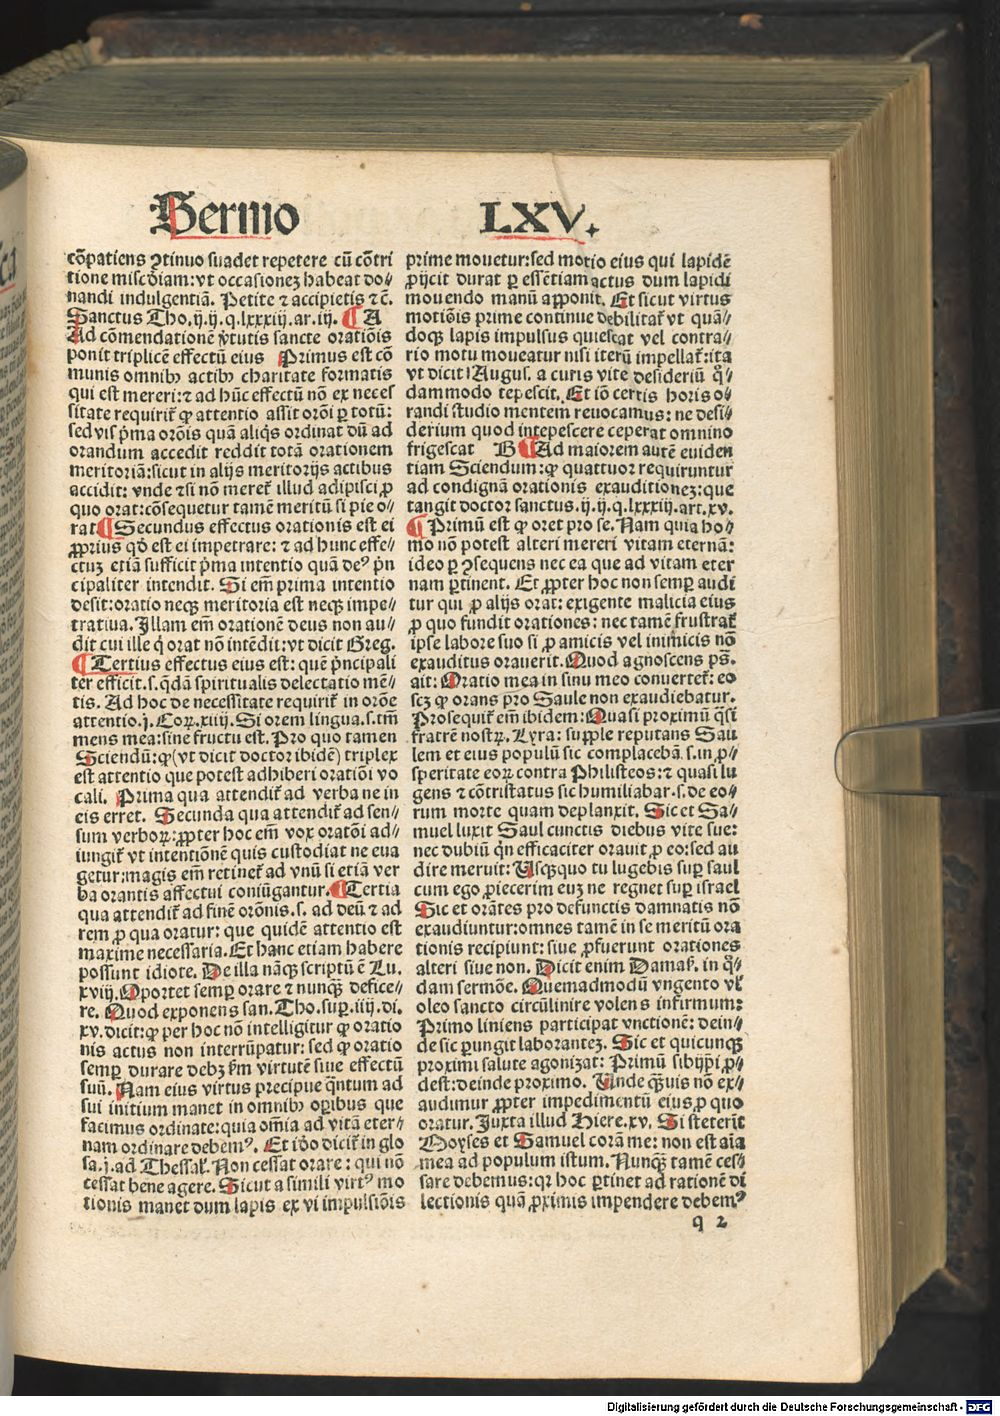 Sermo LXV.
cōpatiens ꝯtinuo suadet repetere cū cōtri
tione miscd̄iam: vt occasionez habeat do⸗
nandi indulgentiā. Petite ⁊ accipietis ⁊ c̄.
Sanctus Tho. ij. ij. q. lxxxiij. ar. iij. ¶ A
Ad cōmendationē v̄tutis sancte oratiōis
ponit triplicē effectū eius Primus est cō
munis omnibꝫ actibꝫ charitate formatis
qui est mereri: ⁊ ad hūc effectū nō ex neces
sitate requiritᷣ ꝙ attentio assit orōi ꝑ totū:
sed vis p̄ma orōis quā aliq̄s ordinat dū ad
orandum accedit reddit totā orationem
meritoriā: sicut in alijs meritorijs actibus
accidit: vnde ⁊ si nō meretᷣ illud adipisci ꝓ
quo orat: cōsequetur tamē meritū si pie o⸗
rat ¶ Secundus effectus orationis est ei
ꝓprius qd̄ est ei impetrare: ⁊ ad hunc effe⸗
ctuz etiā sufficit p̄ma intentio quā deꝰ p̄n
cipaliter intendit. Si em̄ prima intentio
desit: oratio neqꝫ meritoria est neqꝫ impe⸗
tratiua. Illam em̄ orationē deus non au⸗
dit cui ille q̇ orat nō intēdit: vt dicit Greg.
¶ Tertius effectus eius est: quē p̄ncipali
ter efficit .s. q̄dā spiritualis delectatio mē⸗
tis. Ad hoc de necessitate requiritᷣ in orōe
attentio .j. Coꝝ. xiiij. Si orem lingua .s. tm̄
mens mea: sine fructu est. Pro quo tamen
Sciendū: ꝙ (vt dicit doctor ibidē) triplex
est attentio que potest adhiberi oratiōi vo
cali. Prima qua attenditᷣ ad verba ne in
eis erret. Secunda qua attenditᷣ ad sen⸗
sum verboꝝ: ꝓpter hoc em̄ vox oratōi ad⸗
iungitᷣ vt intentiōnē quis custodiat ne eua
getur: magis em̄ retinetᷣ ad vnū si etiā ver
ba orantis affectui coniūgantur. ¶ Tertia
qua attenditᷣ ad finē orōnis .s. ad deū ⁊ ad
rem ꝓ qua oratur: que quidē attentio est
maxime necessaria. Et hanc etiam habere
possunt idiote. De illa nāqꝫ scriptū ē Lu.
xviij. Oportet semꝑ orare ⁊ nunqꝫ defice⸗
re. Quod exponens san. Tho. suꝑ. iiij. di.
xv. dicit: ꝙ per hoc nō intelligitur ꝙ oratio
nis actus non interrūpatur: sed ꝙ oratio
semꝑ durare debꝫ ẜm virtutē siue effectū
suū. Nam eius virtus precipue q̄ntum ad
sui initium manet in omnibꝫ oꝑibus que
facimus ordinate: quia om̄ia ad vitā eter⸗
nam ordinare debemꝰ. Et iō dicitᷣ in glo
sa .j. ad Thessalꝭ. Non cessat orare: qui nō
cessat bene agere. Sicut a simili virtꝰ mo
tionis manet dum lapis ex vi impulsiōis
prime mouetur: sed motio eius qui lapidē
ꝓijcit durat ꝑ essētiam actus dum lapidi
mouendo manū apponit. Et sicut virtus
motiōis prime continue debilitatᷣ vt quā⸗
doqꝫ lapis impulsus quiescat vel contra⸗
rio motu moueatur nisi iterū impellatᷣ: ita
vt dicit Augus. a curis vite desideriū q̇⸗
dammodo tepescit. Et iō certis horis o⸗
randi studio mentem reuocamus: ne desi⸗
derium quod intepescere ceperat omnino
frigescat B ¶ Ad maiorem autē euiden
tiam Sciendum: ꝙ quattuor requiruntur
ad condignā orationis exauditionez: que
tangit doctor sanctus. ij. ij. q. lxxxiij. art. xv.
¶ Primū est ꝙ oret pro se. Nam quia ho⸗
mo nō potest alteri mereri vitam eternā:
ideo ꝑ ꝯsequens nec ea que ad vitam eter
nam ꝑtinent. Et ꝓpter hoc non semꝑ audi
tur qui ꝓ alijs orat: exigente malicia eius
ꝓ quo fundit orationes: nec tamē frustratᷣ
ipse labore suo si ꝓ amicis vel inimicis nō
exauditus orauerit. Quod agnoscens ps̄.
ait: Oratio mea in sinu meo conuertetᷣ: eo
scꝫ ꝙ orans pro Saule non exaudiebatur.
Prosequitᷣ em̄ ibidem: Quasi proximū q̄si
fratrē nostꝝ. Lyra: supple reputans Sau
lem et eius populū sic complacebā .s. in ꝓ⸗
speritate eoꝝ contra Philisteos: ⁊ quasi lu
gens ⁊ cōtristatus sic humiliabar .s. de eo⸗
rum morte quam deplanxit. Sic et Sa⸗
muel luxit Saul cunctis diebus vite sue:
nec dubiū qn̄ efficaciter orauit ꝓ eo: sed au
dire meruit: Usqꝫquo tu lugebis suꝑ saul
cum ego ꝓiecerim euz ne regnet suꝑ israel
Sic et orātes pro defunctis damnatis nō
exaudiuntur: omnes tamē in se meritū ora
tionis recipiunt: siue ꝓfuerunt orationes
alteri siue non. Dicit enim Damaẜ. in q̇⸗
dam sermōe. Quemadmodū vngento vlꝭ
oleo sancto circūlinire volens infirmum:
Primo liniens participat vnctionē: dein⸗
de sic ꝑungit laborantez. Sic et quicunqꝫ
proximi salute agonizat: Primū sibijp̄i ꝓ⸗
dest: deinde proximo. Unde qꝫuis nō ex⸗
audimur ꝓpter impedimentū eius ꝓ quo
oratur. Juxta illud Hiere. xv. Si steterīt
Moyses et Samuel corā me: non est aīa
mea ad populum istum. Nunqꝫ tamē ces⸗
sare debemus: qꝛ hoc ꝑtinet ad rationē di
lectionis quā ꝓximis impendere debemꝰ
q 2
Digitalisierung gefördert durch die Deutsche Forschungsgemeinschaft - DFG